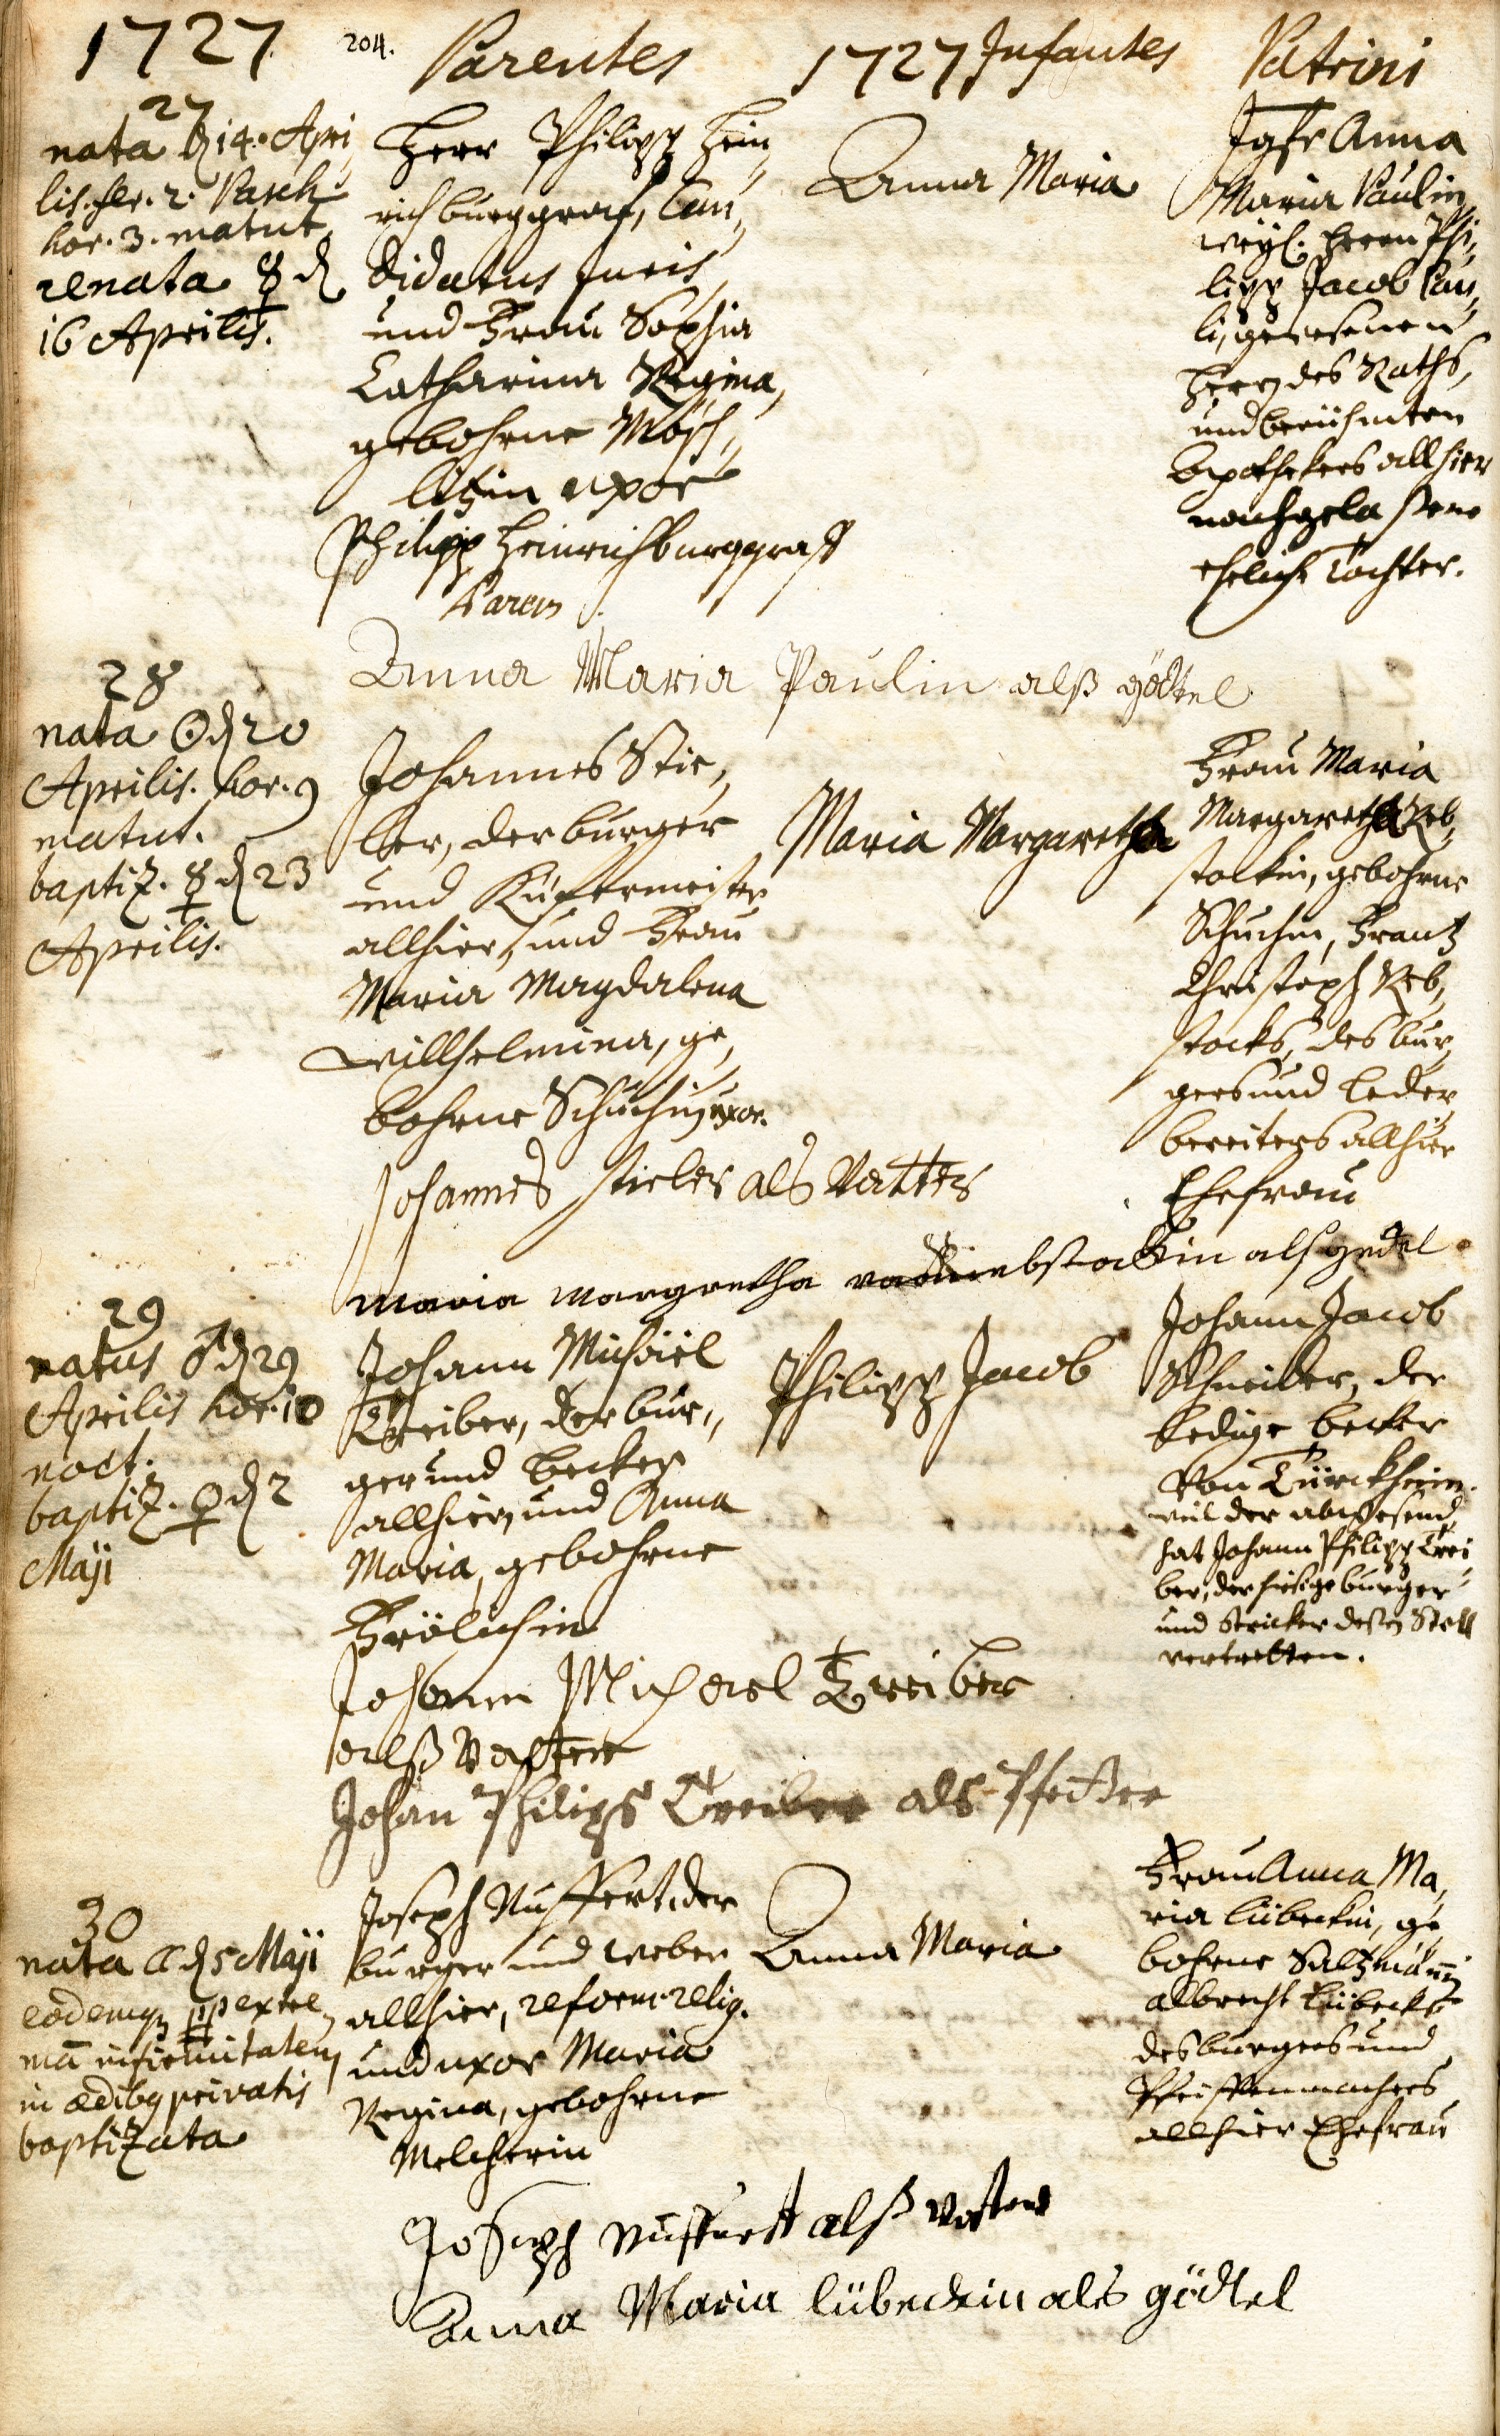 1727 204. Parentes 1727 Infantes Patrini
27
nata d 14. Apri,
lis. fer. 2. Pasch.
hor. 3. matut.
renata ☿ d
16 Aprilis.
Herr Philipp Hein,
rich burggraf, Can,
didatus Juris,
und Frau Sophia
Catharina Regina,
gebohrne Mösch,
litzin uxor
Philipp Heinrich burggraff
Parens
Anna Maria
Jgfr Anna
Maria Paulin,
weyl. Herrn Phi,
lipp Jacob Pau,
li, gewesenen
Herrn des Raths,
und berühmten
Apothekers allhier
nachgelaßene
ehelich Tochter.
Anna Maria Paulin alß gödtel
28
nata ☉ d 20
Aprilis. hor. 9
matut.
baptiz. ☿ d 23
Aprilis.
Johannes Stie,
ler, der burger
und Küfermeister
allhier, und Frau
Maria Magdalena
Willhelmina, ge,
bohrne Schuchin uxor.
Johannes stieler als Vatter
Maria Margaretha
Frau Maria
Margaretha Reb,
stockin, gebohrne
Schuchin, Frantz
Christoph Reb,
stocks, des bur,
gers und Leder,
bereiters allhier
Ehefrau
maria margretha rebstockin alß gedel
29
natus ♂ d 29
Aprilis hor. 10
noct.
baptiz. ♀ d 2
Maji
Johann Michaël
Treiber, der bur,,
ger und becker
allhier, und Anna
Maria, gebohrne
Frölichin
Johann Michael Treiber
alß Vatter
Johan Philips Treiber als Pfetter
Philipp Jacob
Johann Jacob
Schneider, der
Ledige becker
von Türckheim.
weil der abwesend,
hat Johann Philipp Trei
ber, der hiesige burger
und Stricker deßen Stell
vertretten.
30
nata ☾ d 5 Maji
eodemq; pp extre,
mā infirmitatem
in ædibq privatis
baptizata
Joseph Nuffert, der
burger und weber
allhier, reform. relig.
und uxor Maria
Regina, gebohrne
Melcherin
Anna Maria
Frau Anna Ma,
ria Lübeckin, ge,
bohrne Saltzmännin
Albrecht Lübecks
des burgers und
Pfeiffenmachers
allhier Ehefrau
Joseph nuffertt alß Vatter
Anna Maria lübeckin als gödtel